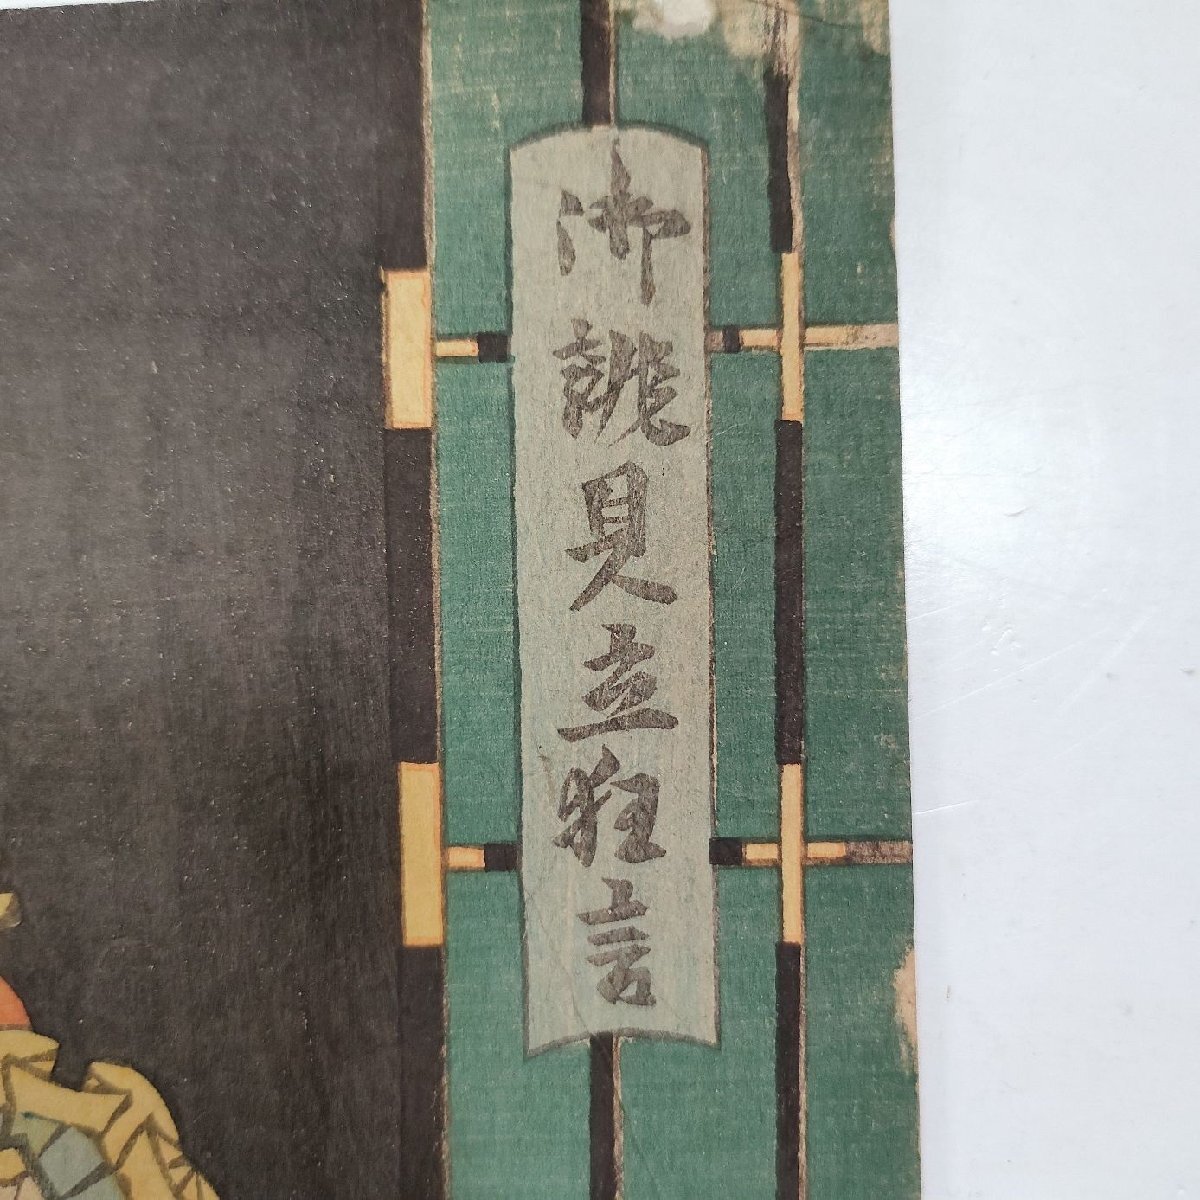 御誂見立狂言